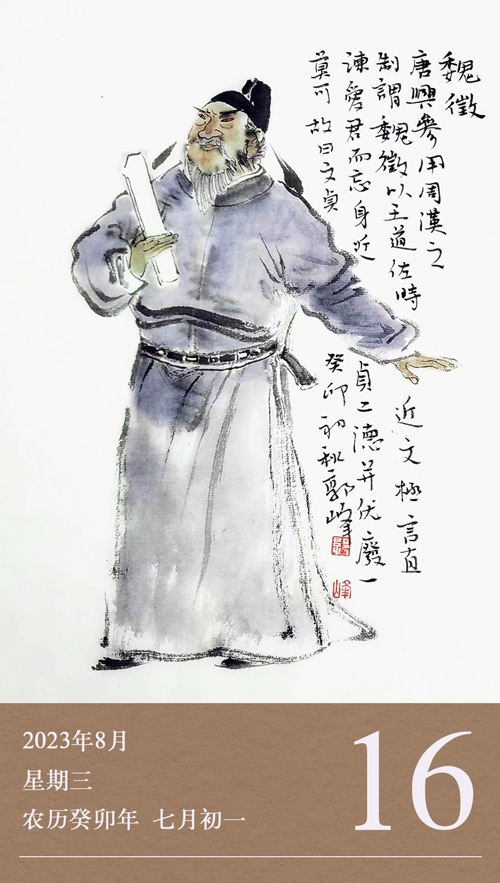 魏徵
唐興參用周漢之
制謂魏徵以王道佐時
近文極言直
諫愛君而忘身近
貞二德并优廢一
莫可故曰文貞
癸卯初秋郭峰
峰
2023年8月
星期三
农历癸卯年 七月初一
16